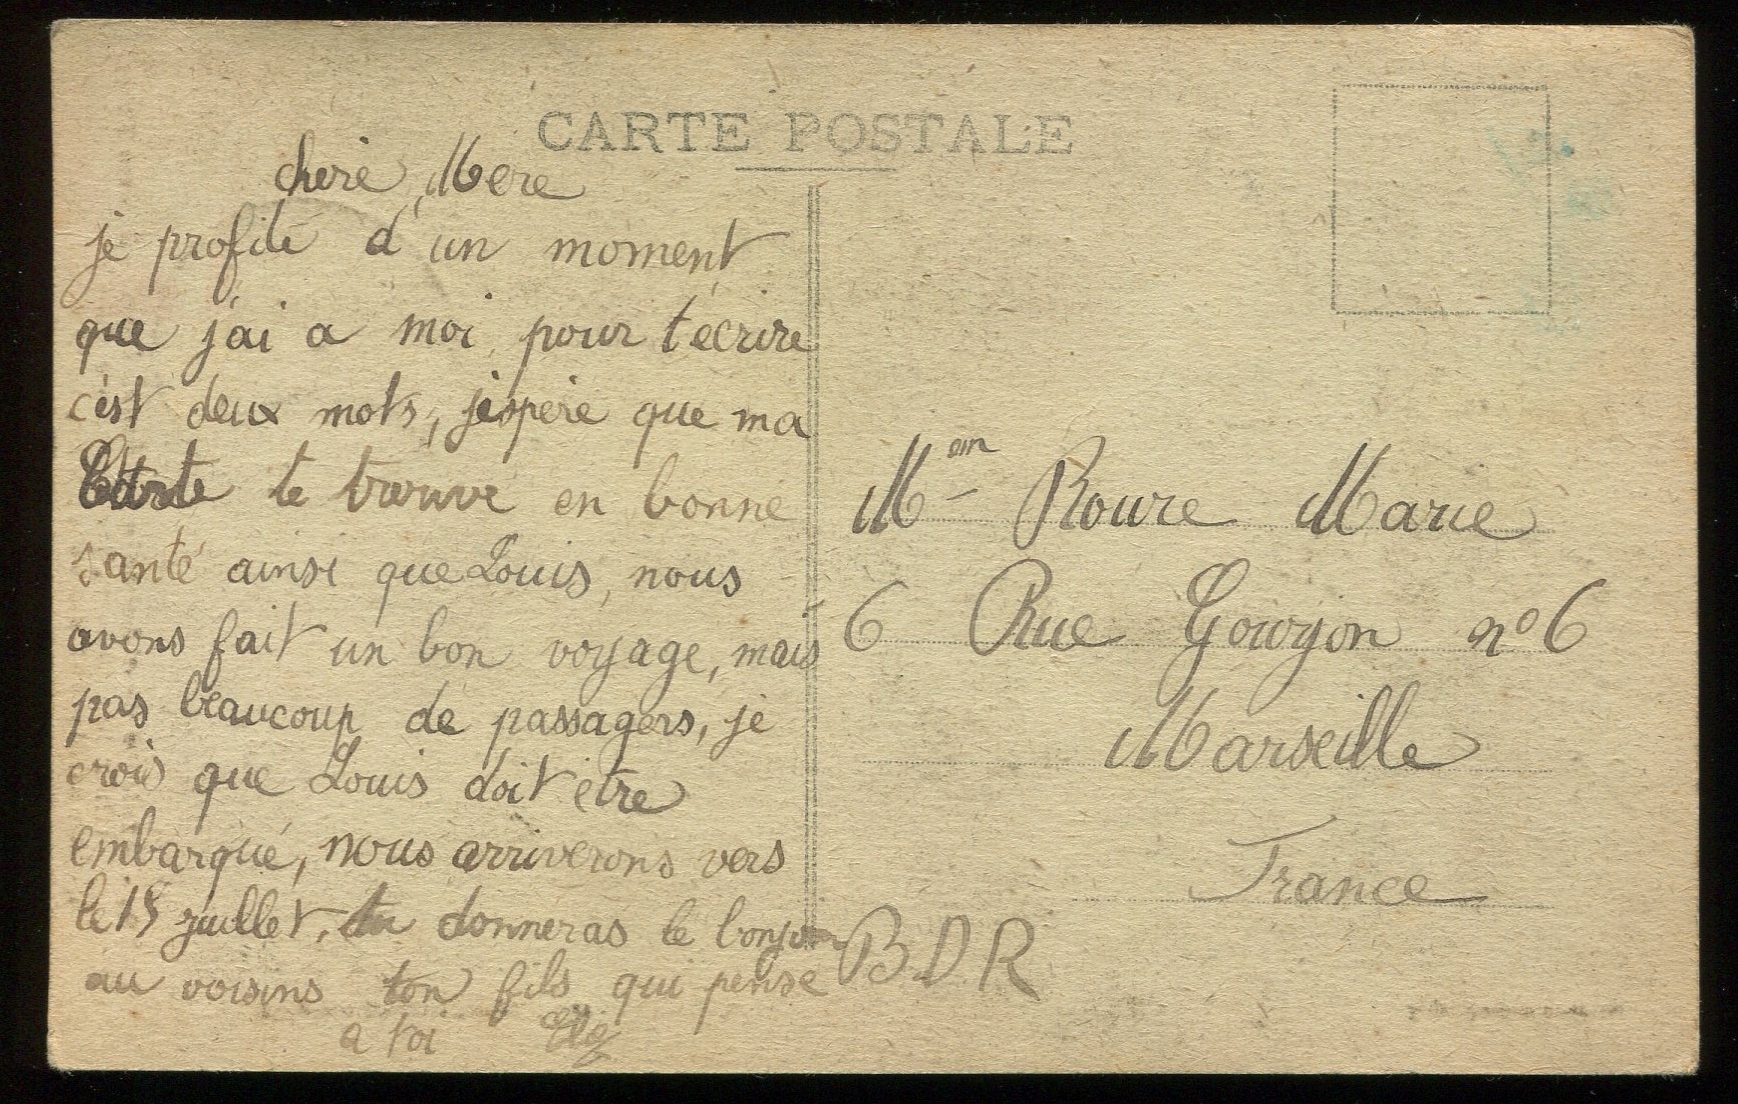 CARTE POSTALE
cherie Mere
je profite d'un moment
que j'ai a moi pour t'ecrire
c'est deux mots, j'espere que ma
Carte te trouve en bonne
santé ainsi que Louis, nous
avons fait un bon voyage, mais
pas beaucoup de passagers, je
crois que Louis doit etre
embarqué, nous arriverons vers
le 15 juillet, tu donneras le bonjour
au voisins ton fils qui pense
a toi
Mem Roure Marie
6 Rue Goujon n° 6
Marseille
France
B.D.R